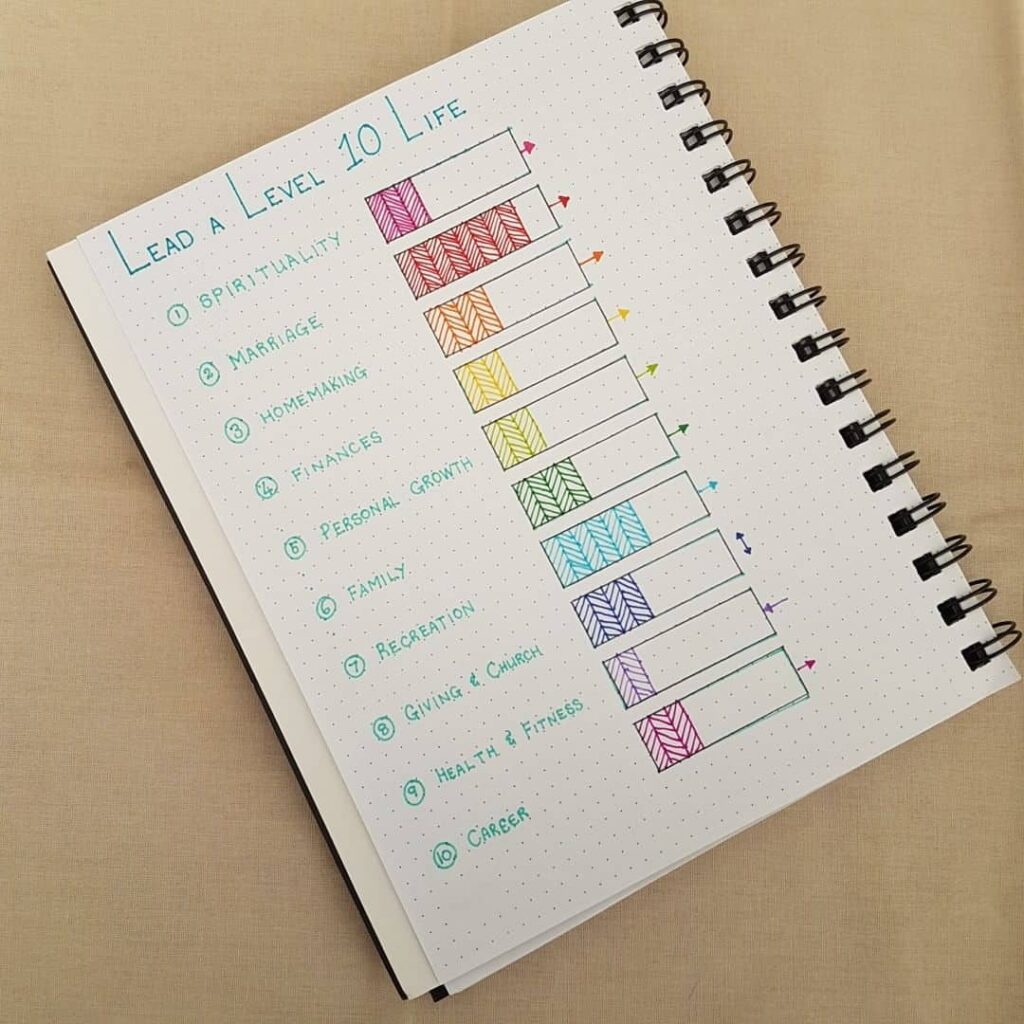 LEAD A LEVEL 10 LIFE
1 SPIRITUALITY
2 MARRIAGE
3 HOMEMAKING
4 FINANCES
5 PERSONAL GROWTH
6 FAMILY
7 RECREATION
8 GIVING & CHURCH
9 HEALTH & FITNESS
10 CAREER